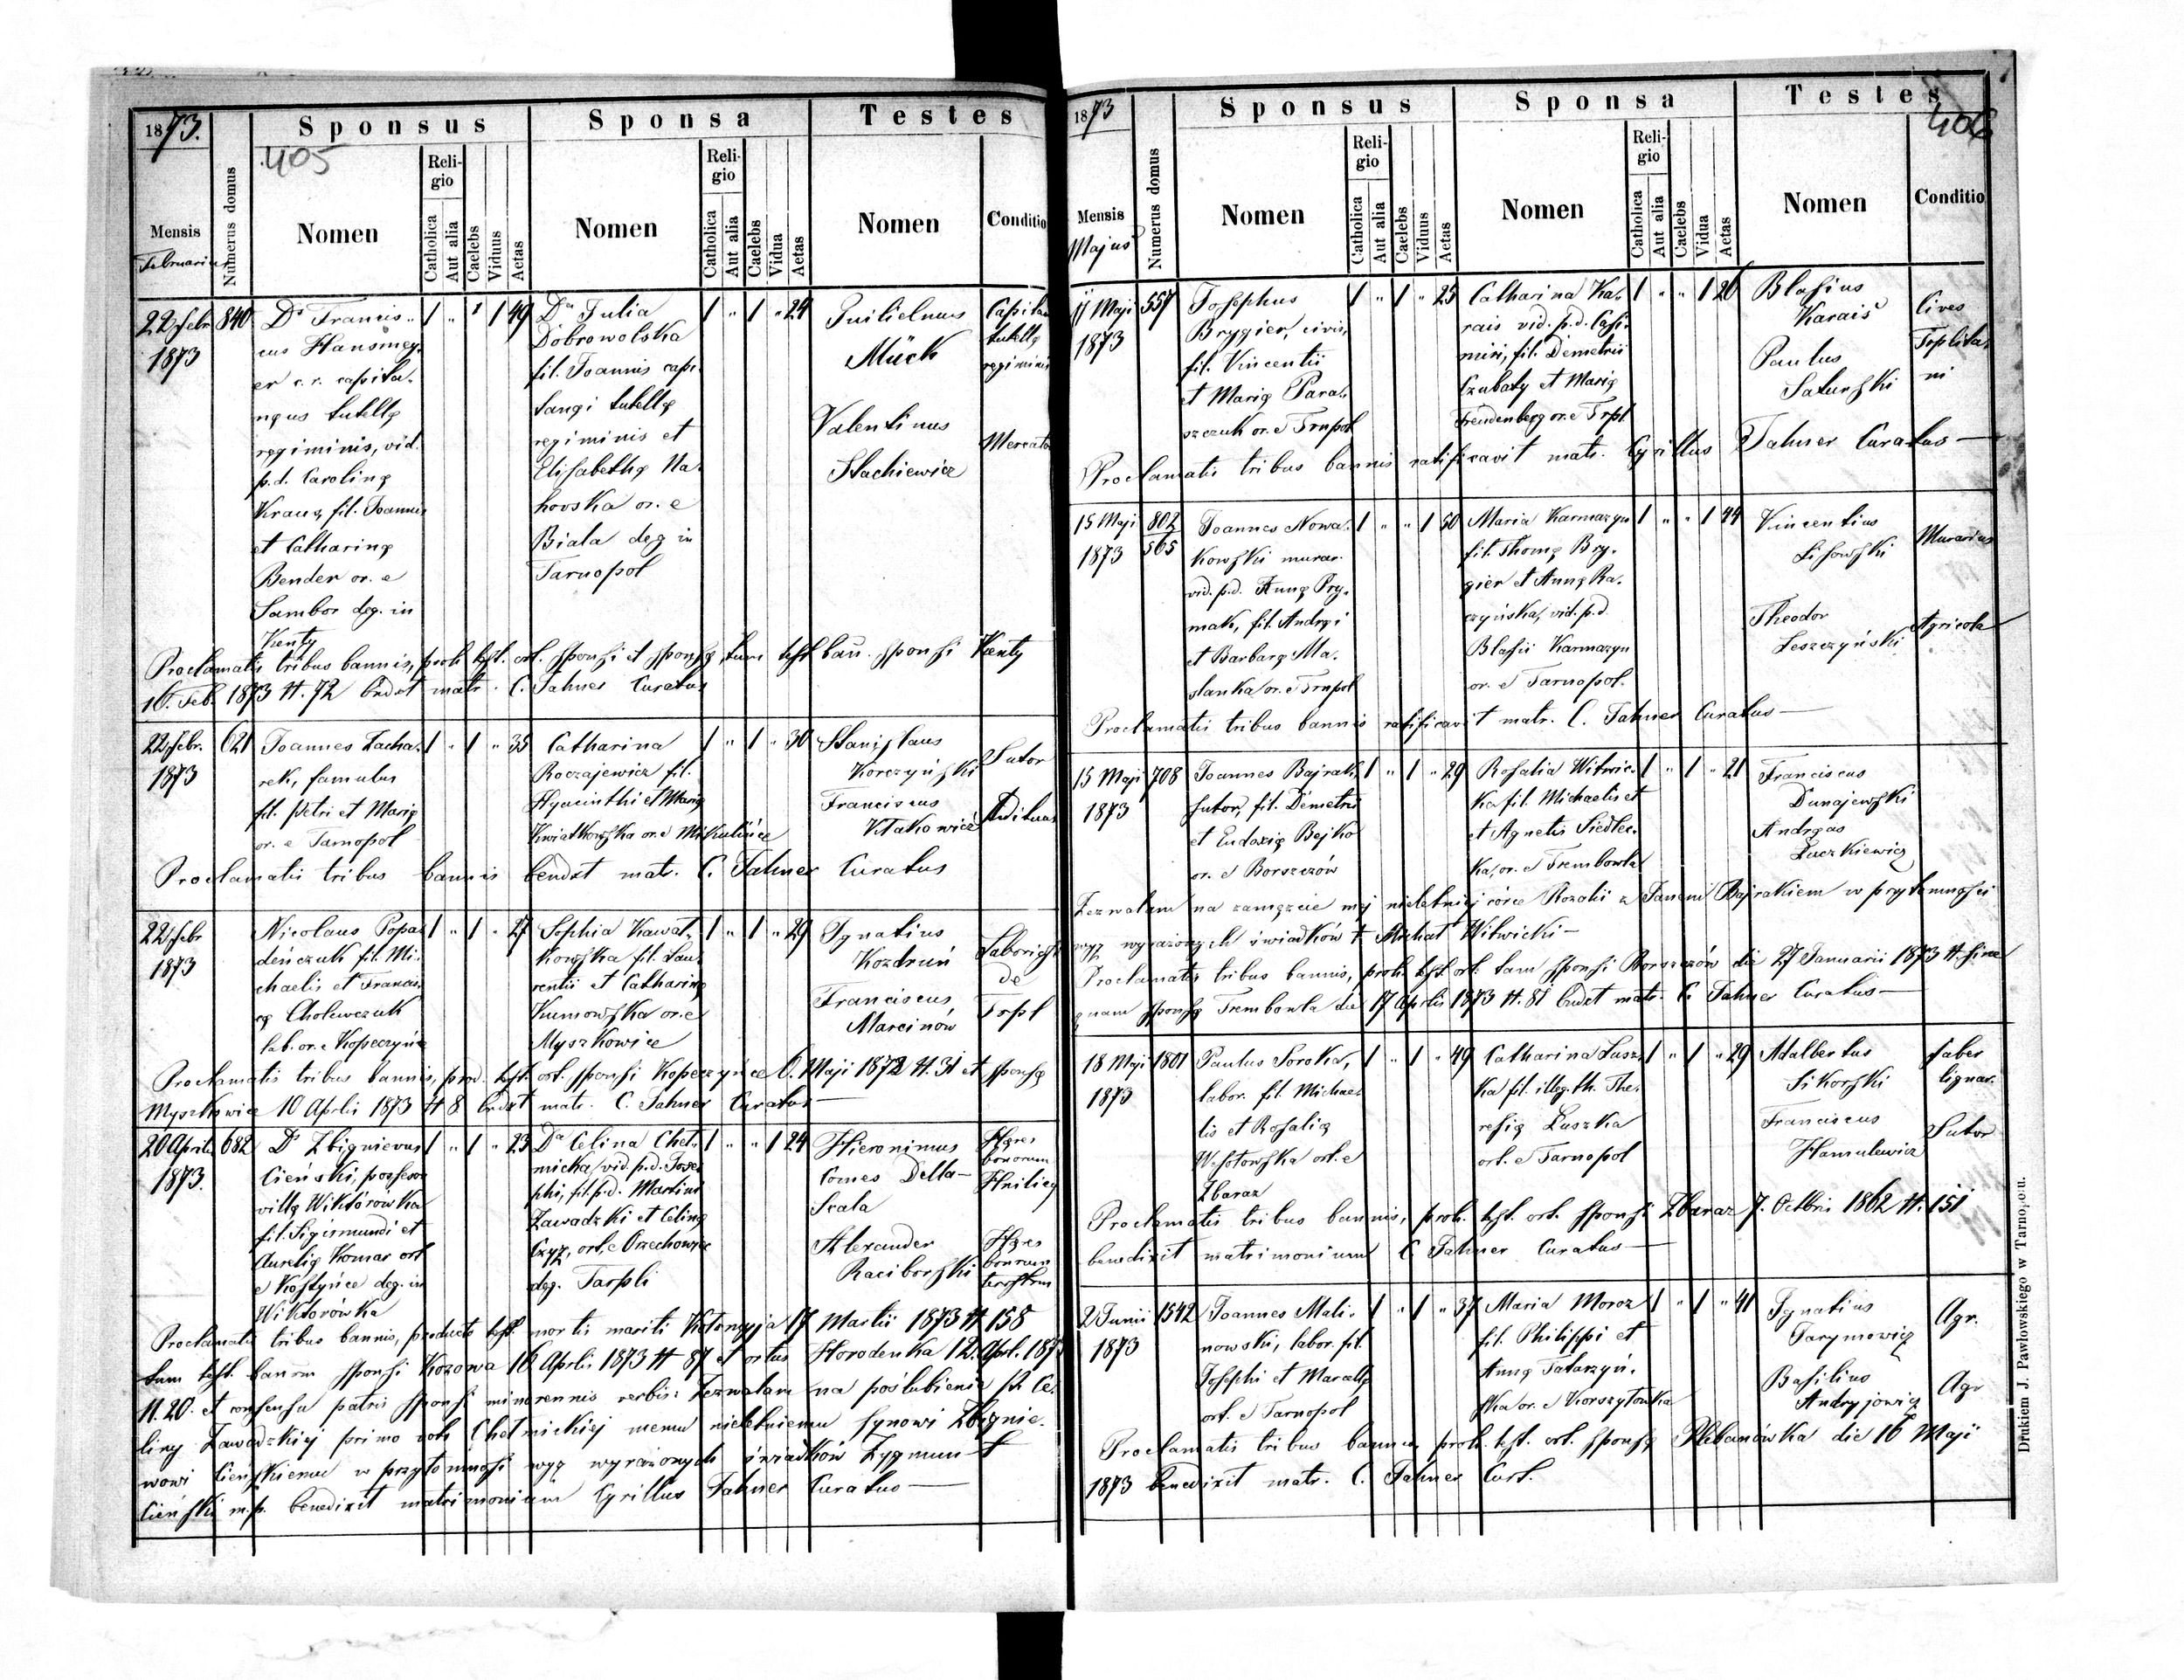 1873.
Sponsus
Sponsa
Testes
405
Mensis
Februarius
Numerus domus
Nomen
Religio
Catholica
Aut alia
Caelebs
Viduus
Aetas
Nomen
Religio
Catholica
Aut alia
Caelebs
Vidua
Aetas
Nomen
Conditio
22 febr
1873
840
Ds Francis-
cus Hansmey-
er c. r. capita-
neus tutellę
regiminis, vid.
p.d. Carolinę
Kraus, fil. Joannis
et Catharinę
Bender or. e
Sambor deg. in
Kenty
1 " " 1 49
Da Julia
Dobrowolska
fil. Joannis capi-
tanei tutellę
regiminis et
Elisabethę Na-
howska or. e
Biala deg in
Tarnopol
1 " 1 " 24
Guilielmus
Mück
Valentinus
Stachiewicz
tutellę
regiminis
Mercator
Proclamatis tribus bannis, prod. test. ort. sponsi et sponsę, tum test. ban. sponsi Kenty
16. Feb. 1873 N. 72 bndxt matr. C. Tahner Curatus
22 febr.
1873
621
Joannes Zacha-
rek, famulus
fil. Petri et Marię
or. e Tarnopol
1 " 1 " 35
Catharina
Roczajewicz fil.
Hyacinthi et Marię
Kwiatkowska or. e Mikulińce
1 " 1 " 30
Stanislaus
Korczyński
Franciscus
Sutor
Proclamatis tribus bannis bendxt matr. C. Tahner Curatus
22 febr
1873
Nicolaus Popa-
deńczuk fil. Mi-
chaelis et Francis-
cę Cholewczuk
lab. or. e Kopeczyńce
1 " 1 " 27
Sophia Kawal-
kowska fil. Lau-
rentii et Catharinę
Kumowska or. e
Myszkowice
1 " 1 " 29
Ignatius
Kozdruń
Franciscus
Marcinów
de
Trpl
Proclamatis tribus bannis, prod. test. ort. sponsi Kopeczyńce 6. Maji 1872 N. 31 et sponsę
Myszkowice 10 Aprlis 1873 N 8 bndxt matr. C. Tahner Curatus
20 Aprlis
1873.
682
Ds Zbignievus
Cieński, possessor
villę Wiktorówka
fil. Sigismundi et
Aurelię Komar ort
e Kostyńce deg. in
Wiktorówka
1 " 1 " 23
Da Celina Cheł-
micka, vid. p.d. Jose-
phi, fil. p.d. Martini
Zawadzki et Celinę
Czyz, ort. e Orzechowiec
deg. Tarpli
1 " " 1 24
Hieronimus
Comes Della-
Scala
Alexander
Raciborski
Hęres
bonorum
Hniliczę
Hęres
bonorum
Proclamatis tribus bannis, producto test. mortis mariti 17 Martii 1873 N 158
tum test. bannorum sponsi Kozowa 16 Aprlis 1873 N 87 et ortus Horodenka 12. Aprl. 1873
N. 20. et consensu patris sponsi minorennis verbis: Zezwalam na poślubienie Ce-
liny Zawadzkiej primo voto Chełmickiej memu nieletniemu synowi Zbignie-
wowi Cieńskiemu w przytomności wyz wyrażonych świadków Zygmunt
Cieński m.p. benedixit matrimonium Cyrillus Tahner Curatus
1873
Sponsus
Sponsa
Testes
406
Mensis
Majus
Numerus domus
Nomen
Religio
Catholica
Aut alia
Caelebs
Viduus
Aetas
Nomen
Religio
Catholica
Aut alia
Caelebs
Vidua
Aetas
Nomen
Conditio
11 Maji
1873
557
Josephus
Brygier, civis,
fil. Vincentii
et Marię Para-
szczuk or. e Trnpol
1 " 1 " 25
Catharina Ka-
rais vid. p.d. Casi-
miri, fil. Demetrii
Czubaty et Marię
Freudenberg or. e Trpl
1 " " 1 26
Blasius
Karais
Paulus
Saturski
Cives
Toplita-
ni
Proclamatis tribus bannis ratificavit matr. Cyrillus Tahner Curatus
15 Maji
1873
802
565
Joannes Nowa-
kowski murar.
vid. p.d. Annę Pry-
mak, fil. Andręi
et Barbarę Ma-
slanka or. e Trnpol
1 " " 1 50
Maria Karmazyn
fil. Thomę Bry-
gier et Annę Ra-
czyńska, vid. p.d.
Blasii Karmazyn
or. e Tarnopol.
1 " " 1 44
Vincentius
Lisowski
Theodor
Leszczyński
Murarius
Agricola
Proclamatis tribus bannis ratificavit matr. C. Tahner Curatus
15 Maji
1873
708
Joannes Bajrak
sutor, fil. Demetrii
et Eudoxię Bejko
or. e Borszczów
1 " 1 " 29
Rosalia Witwic-
ka fil. Michaelis et
et Agnetis Siedlec-
ka, or. e Trembowla
1 " 1 " 21
Franciscus
Dunajewski
Andręas
Łuczkiewicz
Zezwalam na zamęzcie mej nieletniej córce Rozalii z Janem Bajrakiem w przytomności
wyz wyrażonych świadków + Michał Witwicki
Proclamatis tribus bannis, prod. test. ort. tam sponsi Borszczów die 27 Januarii 1873 N. sine
quam sponsę Trembowla die 17 Aprlis 1873 N. 81 bndxt matr. C. Tahner Curatus
18 Maji
1873
1801
Paulus Soroka,
labor. fil. Michae-
lis et Rosalię
Wesołowska ort. e
Zbaraz
1 " 1 " 49
Catharina Łusz-
ka fil. illeg. th. The-
resię Łuszka
ort. e Tarnopol
1 " 1 " 29
Adalbertus
Sikorski
Franciscus
Hamulewicz
faber
lignar.
Sutor
Proclamatis tribus bannis, prod. test. ort. sponsi Zbaraz 7. Octbri 1862 N. 151
benedixit matrimonium C Tahner Curatus
2 Junii
1873
1542
Joannes Mali-
nowski, labor. fil.
Josephi et Marcellę
ort. e Tarnopol
1 " 1 " 37
Maria Moroz
fil. Philippi et
Annę Tatarzyń-
ska or. e Worszytówka
1 " 1 " 41
Ignatius
Jarymowicz
Basilius
Andryjowicz
Agr.
Agr
Proclamatis tribus bannis prod. test. ort. sponsę Plebanówka die 16 Maji
1873 benedixit matr. C. Tahner Curt.
Drukiem J. Pawłowskiego w Tarnopolu.